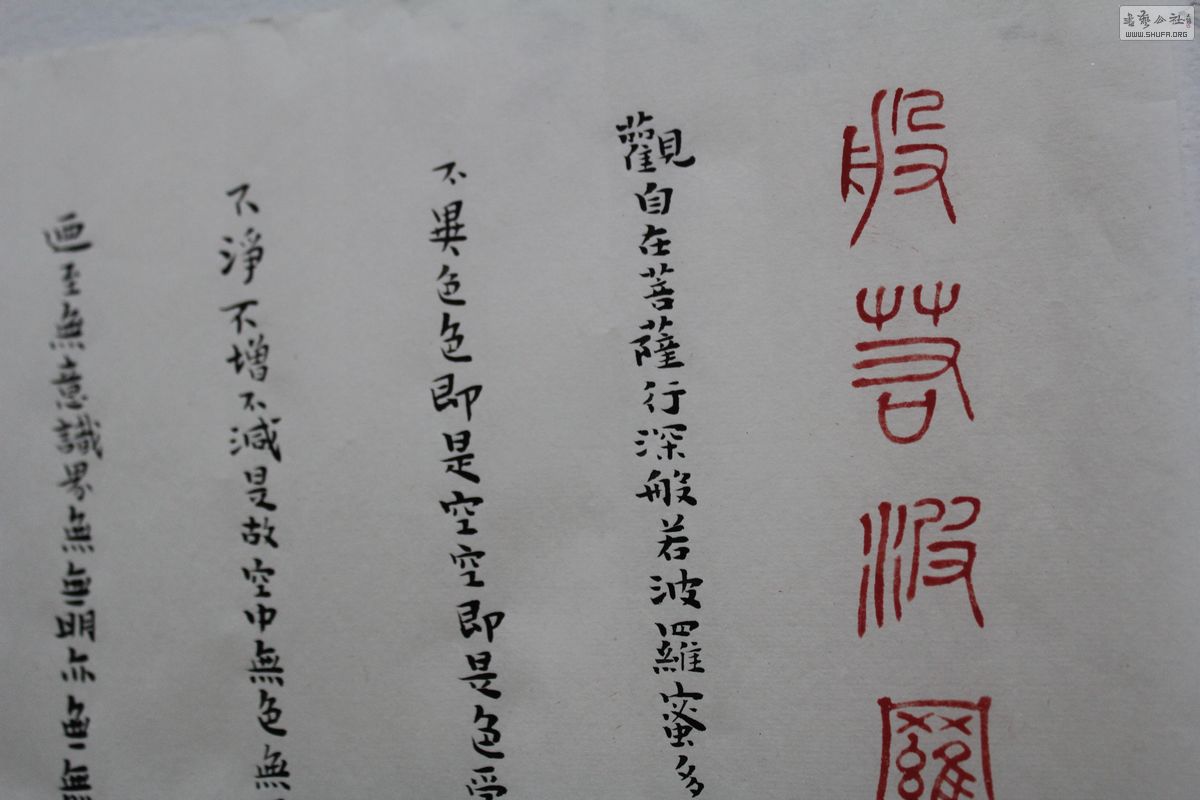 般若波羅
觀自在菩薩行深般若波羅蜜多
不異色色即是空空即是色受
不淨不增不減是故空中無色無
迺至無意識界無無明亦無無
書藝公社
WWW.SHUFA.ORG